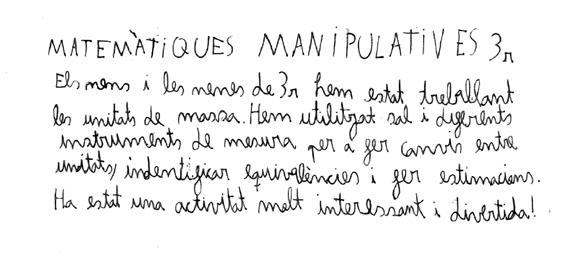 MATEMÀTIQUES MANIPULATIVES 3r
Els nens i les nenes de 3r hem estat treballant
les unitats de massa. Hem utilitzat sal i diferents
instruments de mesura per a fer canvis entre
unitats, indentificar equivalències i fer estimacions.
Ha estat una activitat molt interessant i divertida!